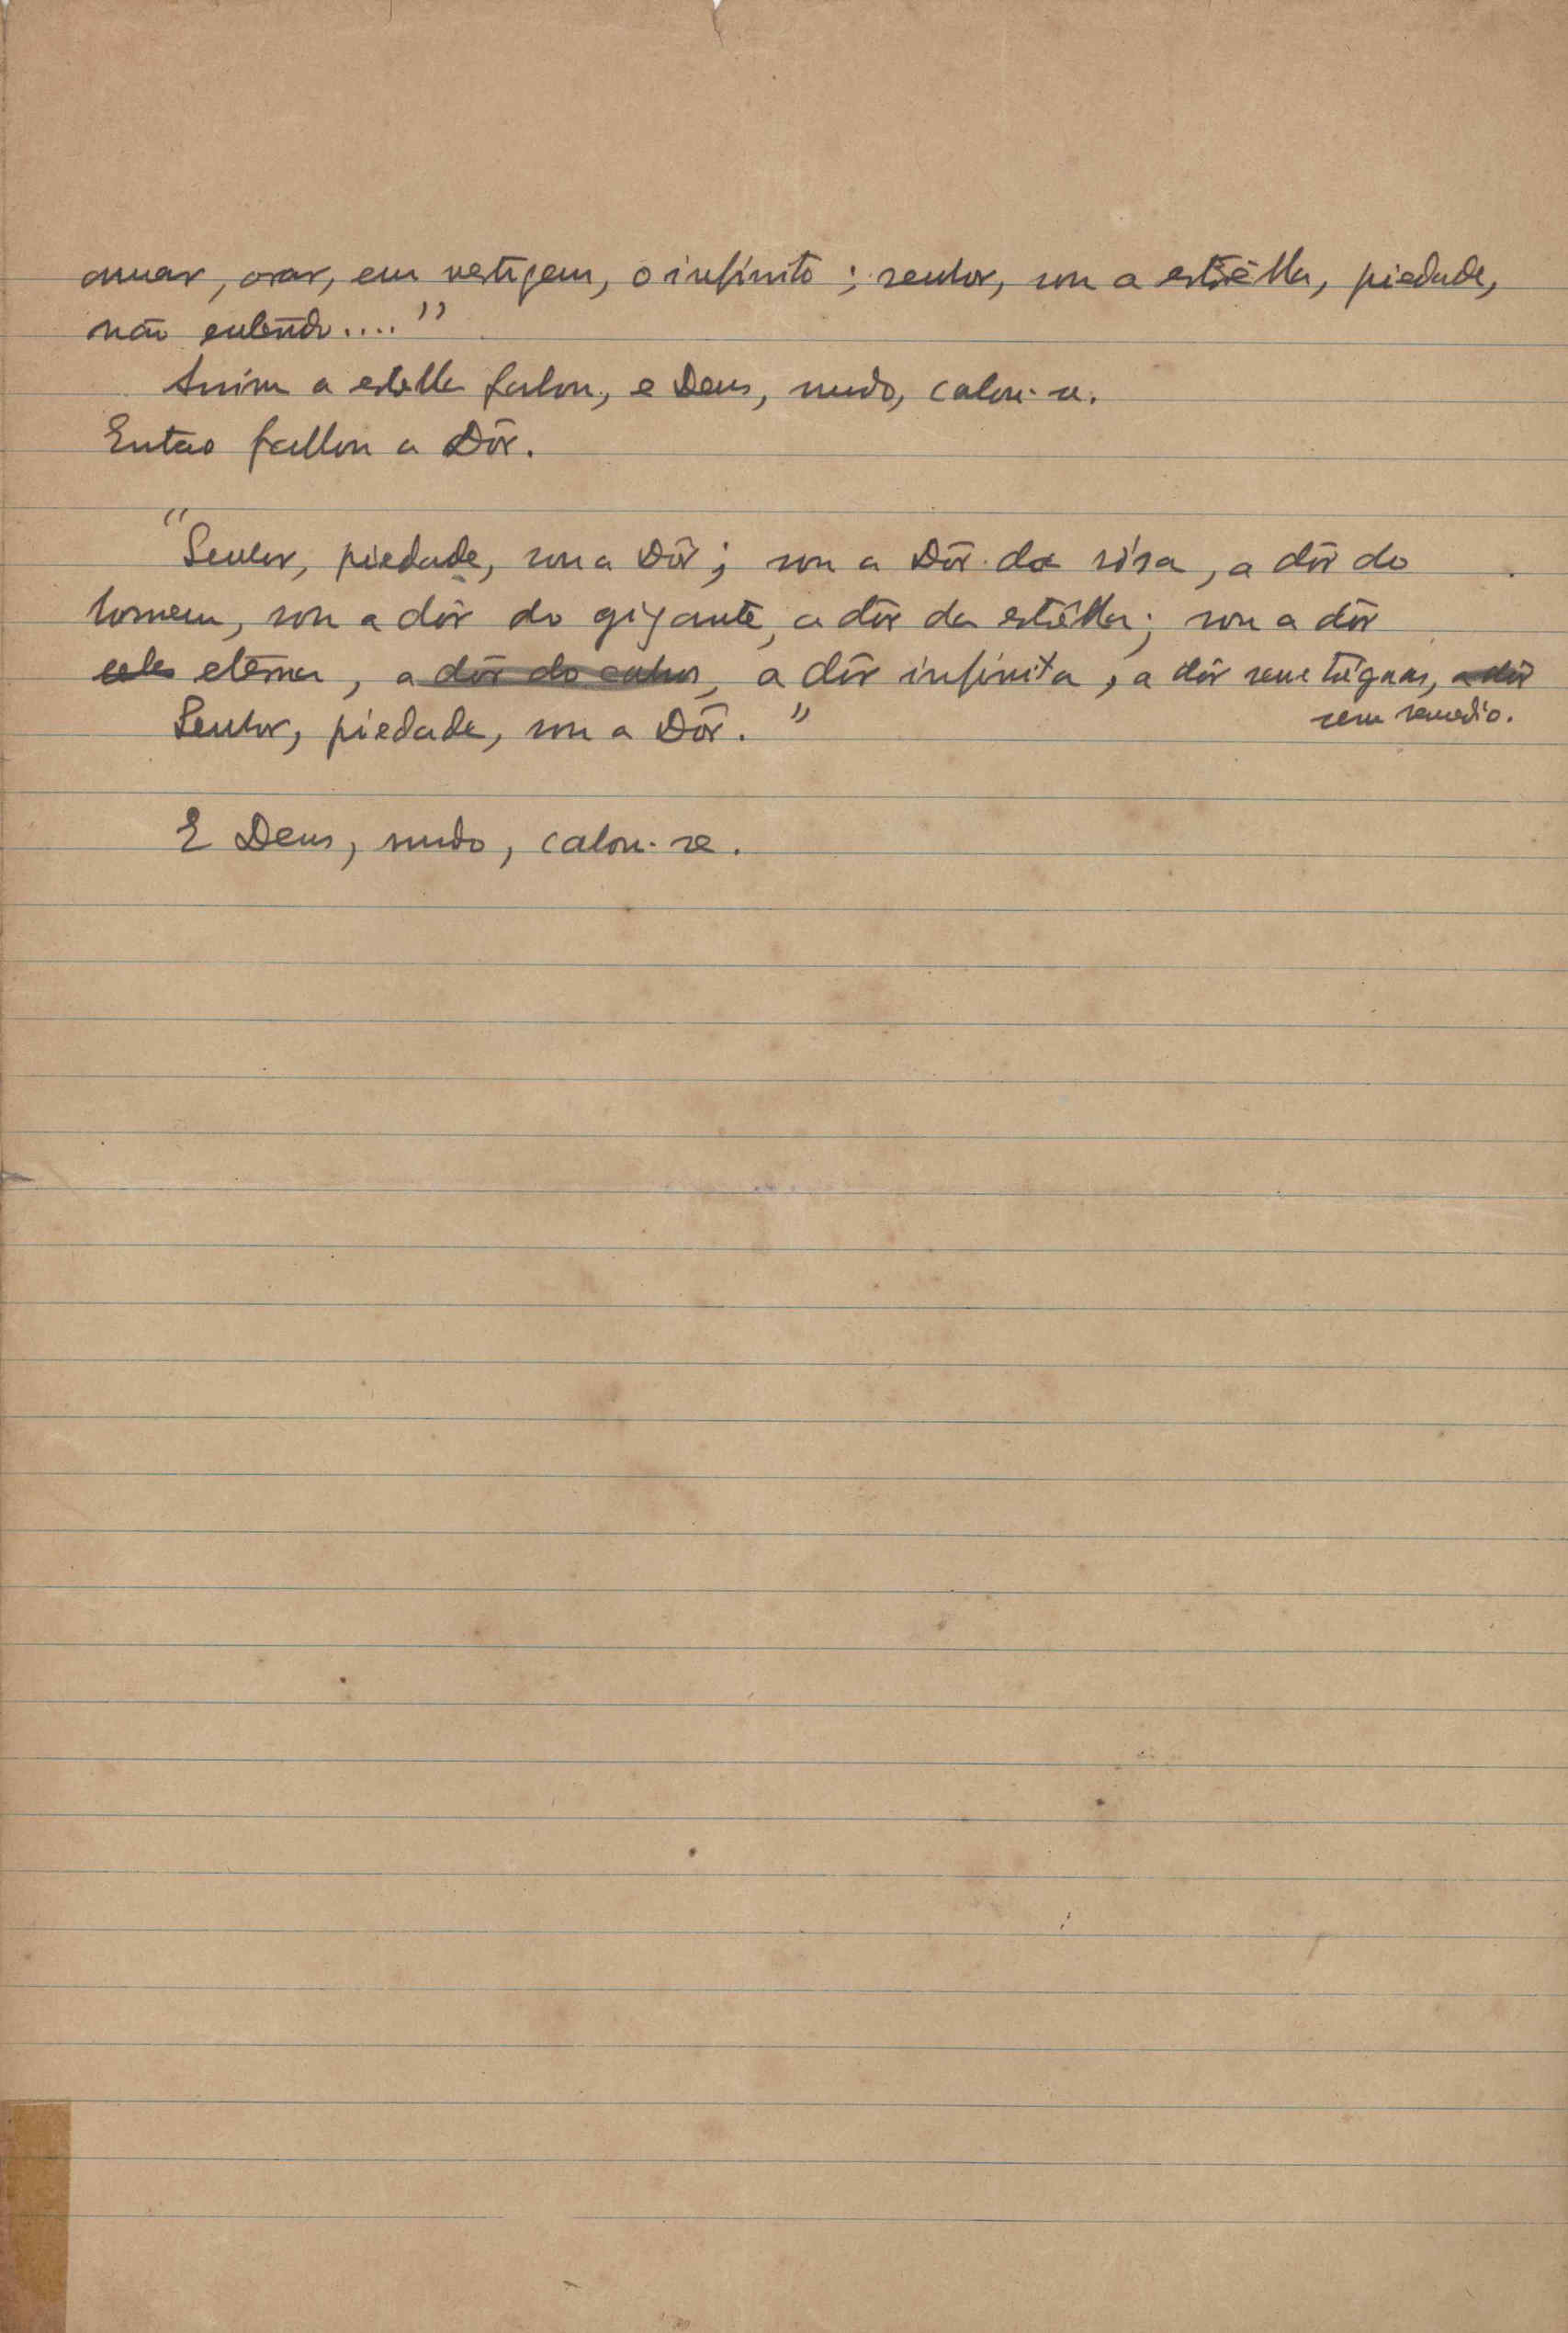 amar, orar, em vertigem, o infinito; senhor, sou a estrêlla, piedade,
não entendo...."
Assim a estrella falou, e Deus, mudo, calou-se.
Entao fallou a Dôr.
"Senhor, piedade, sou a Dôr; sou a Dôr da rósa, a dôr do
homem, sou a dôr do gigante, a dôr da estrêlla; sou a dôr
eterna, a dôr do, a dôr infinita, a dôr sem tréguas, a dôr
sem remedio.
Senhor, piedade, sou a Dôr."
E Deus, mudo, calou-se.